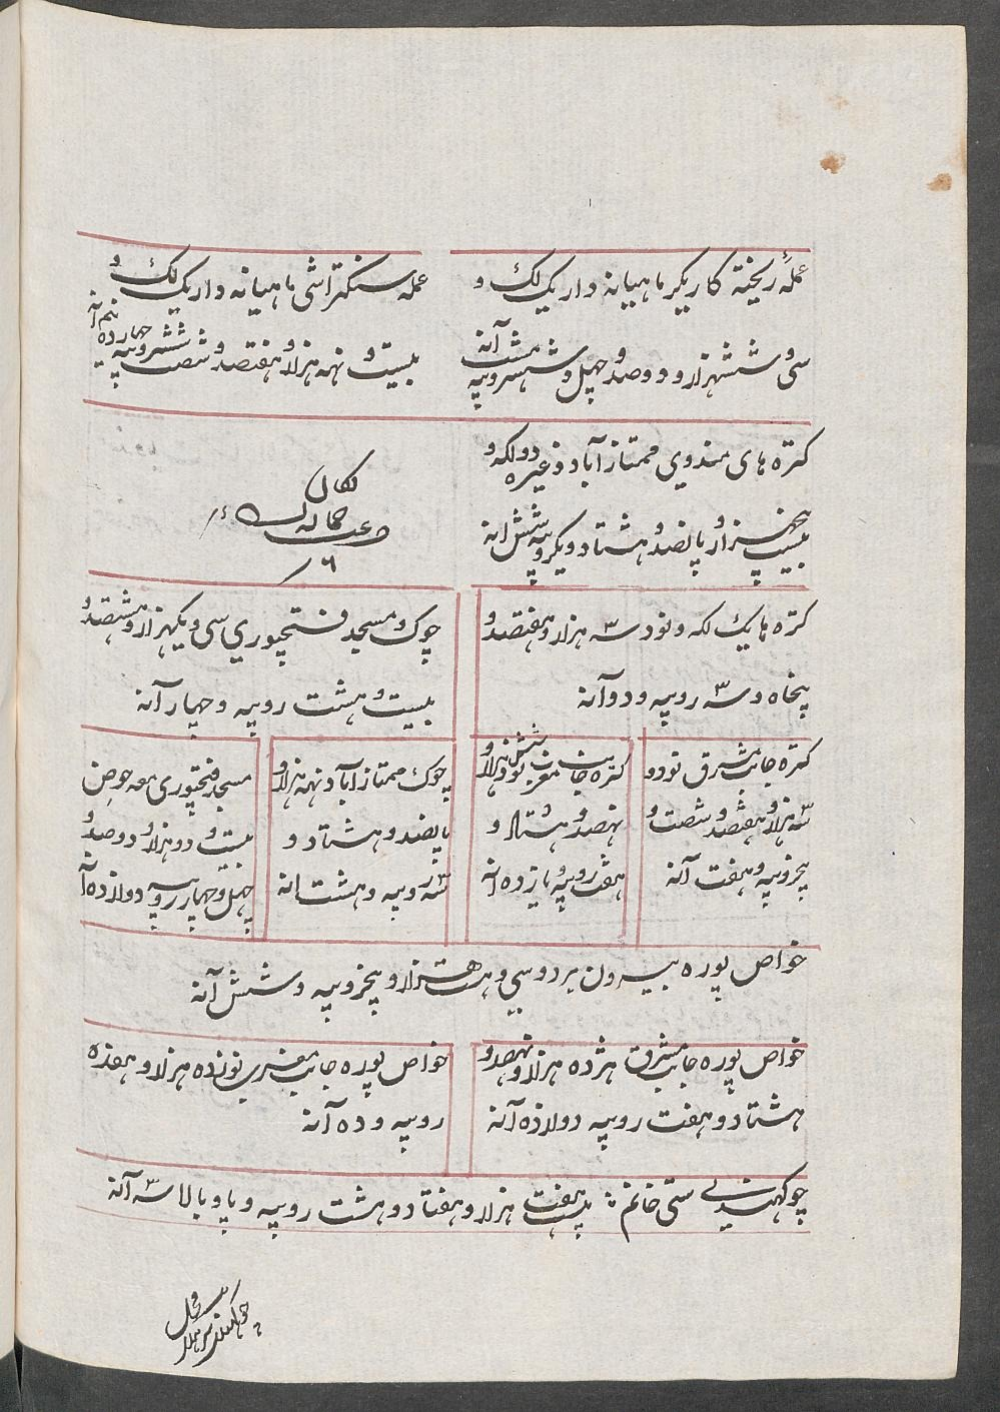 عملهٔ ریخته کاریگر ماهیانه دار یک لک و
سی و ششهزار و دوصد و چهل و ششروپیه هشت آنه
عمله سنگتراشی ماهیانه دار یک لک و
بیست و نهه هزار و هفتصد و شصت و ششروپیه چهارده نیم آنه
کتره های مندوی ممتازآباد وغیره دولکه و
بیست پنجهزار و پانصد و هشتاد و یکروپیه شش آنه
کتره ها یک لکه و نود سه هزار و هفتصد و
پنجاه و سه روپیه و دو آنه
چوک و مسجد فتحپوری سی و یکهزار و هشتصد و
بیست و هشت روپیه و چهار آنه
کتره جانب مشرق نود و
سه هزار و هفتصد و شصت و
پنجروپیه و هفت آنه
کتره جانب مغرب نود و شش هزار و
نهصد و هشتاد و
هفت روپیه و یازده آنه
چوک ممتازآباد نهه هزار و
پانصد و هشتاد و
سه روپیه و هشت انه
مسجد فتحپوری معه حوض
بیست و دو هزار و دوصد و
چهل و چهار روپیه دوازده آنه
خواص پوره بیرون بر دو سی و هشت هزار و پنجروپیه و شش آنه
خواص پوره جانب مشرق هژده هزار و نهصد و
هشتاد و هفت روپیه دوازده آنه
خواص پوره جانب مغربی نوزده هزار و هفده
روپیه و ده آنه
چوکهندی ستی خانم بیست هفت هزار و هفتاد و هشت روپیه و پاو بالا سه آنه